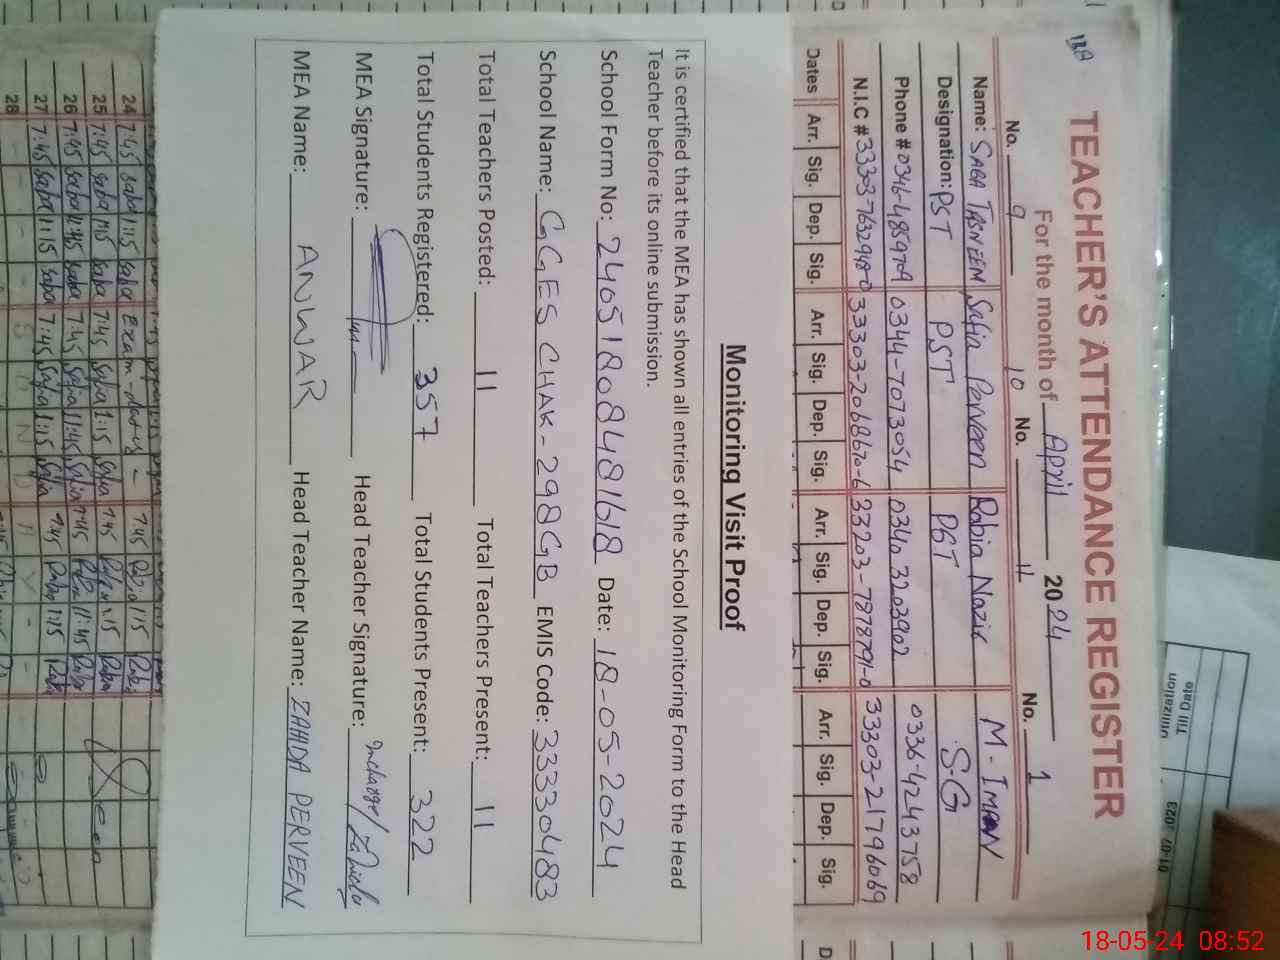 TEACHER'S ATTENDANCE REGISTER
For the month of April 2024
No. 9 No. 10 No. 11 No. 1
Name: SABA TASNEEM Safia Perveen Rabia Nazir M-IMRAN
Designation: PST PST PST S.G
Phone # 0346-4859709 0344-7073054 0340 3203902 0336-4243758
N.I.C # 33303 7632948-0 33303-2068670-6 33203-7878791-0 33303-21796069
Dates Arr. Sig. Dep. Sig. Arr. Sig. Dep. Sig. Arr. Sig. Dep. Sig. Arr. Sig. Dep. Sig.
Monitoring Visit Proof
It is certified that the MEA has shown all entries of the School Monitoring Form to the Head
Teacher before its online submission.
School Form No: 24051808481618 Date: 18-05-2024
School Name: GGES CHAK-298GB EMIS Code: 33330483
Total Teachers Posted: 11 Total Teachers Present: 11
Total Students Registered: 357 Total Students Present: 322
MEA Signature: Head Teacher Signature: Incharge/Zahida
MEA Name: ANWAR Head Teacher Name: ZAHIDA PERVEEN
24 7:45 saba 1:15 saba Exam-duty - 7:45 Rabia 1:15 Rabia
25 7:45 saba 1:15 saba 7:45 safia 1:15 safia 7:45 Rabia 1:15 Rabia
26 7:45 saba 11:45 saba 7:45 safia 11:45 safia 7:45 Rabia 11:45 Rabia
27 7:45 saba 1:15 saba 7:45 safia 1:15 safia 7:45 Rabia 1:15 Rabia
28 - - - - S U N D A Y - -
Utilization
Till Date
18-05-24 08:52